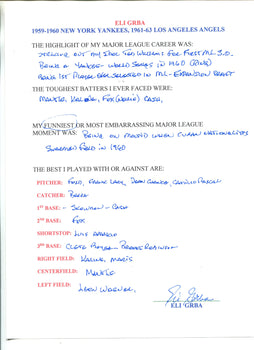 ELI GRBA
1959-1960 NEW YORK YANKEES, 1961-63 LOS ANGELES ANGELS
THE HIGHLIGHT OF MY MAJOR LEAGUE CAREER WAS:
STRIKING OUT MY IDOL TED WILLIAMS FOR FIRST ML S.O.
BEING A YANKEE - WORLD SERIES IN 1960
BEING 1ST PLAYER SELECTED IN ML - EXPANSION DRAFT
THE TOUGHEST BATTERS I EVER FACED WERE:
MANTLE, KALINE, FOX (NELLIE) CASH,
MY FUNNIEST OR MOST EMBARRASSING MAJOR LEAGUE
MOMENT WAS: BEING ON MOUND WHEN CUBAN NATIONALISTS
SWARMED FIELD IN 1960
THE BEST I PLAYED WITH OR AGAINST ARE:
PITCHER: FORD, FRANK LARY, DEAN CHANCE, CAMILO PASCUAL
CATCHER: BERRA
1ST BASE: - SKOWRON - CASH
2ND BASE: FOX
SHORTSTOP: LUIS APARICIO
3RD BASE: CLETE BOYER - BROOKS ROBINSON
RIGHT FIELD: KALINE, MARIS
CENTERFIELD: MANTLE
LEFT FIELD: LEON WAGNER,
Eli Grba
ELI GRBA